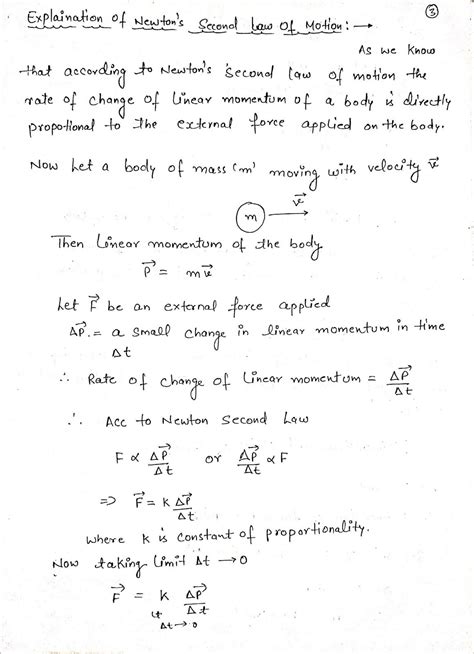 ③
Explaination of Newton's Second Law Of Motion : →
As we know
that according to Newton's second law of motion the
rate of change of linear momentum of a body is directly
propotional to the external force applied on the body.
Now Let a body of mass 'm' moving with velocity v⃗
v⃗
m
Then linear momentum of the body
P⃗ = mv⃗
Let F⃗ be an external force applied
ΔP⃗ = a small change in linear momentum in time
Δt
∴ Rate of change of linear momentum = ΔP⃗/Δt
∴ Acc to Newton Second Law
F ∝ ΔP⃗/Δt or ΔP⃗/Δt ∝ F
⇒ F⃗ = K ΔP⃗/Δt
where K is constant of proportionality.
Now taking limit Δt → 0
F⃗ = K ΔP⃗/Δt
lt
Δt → 0